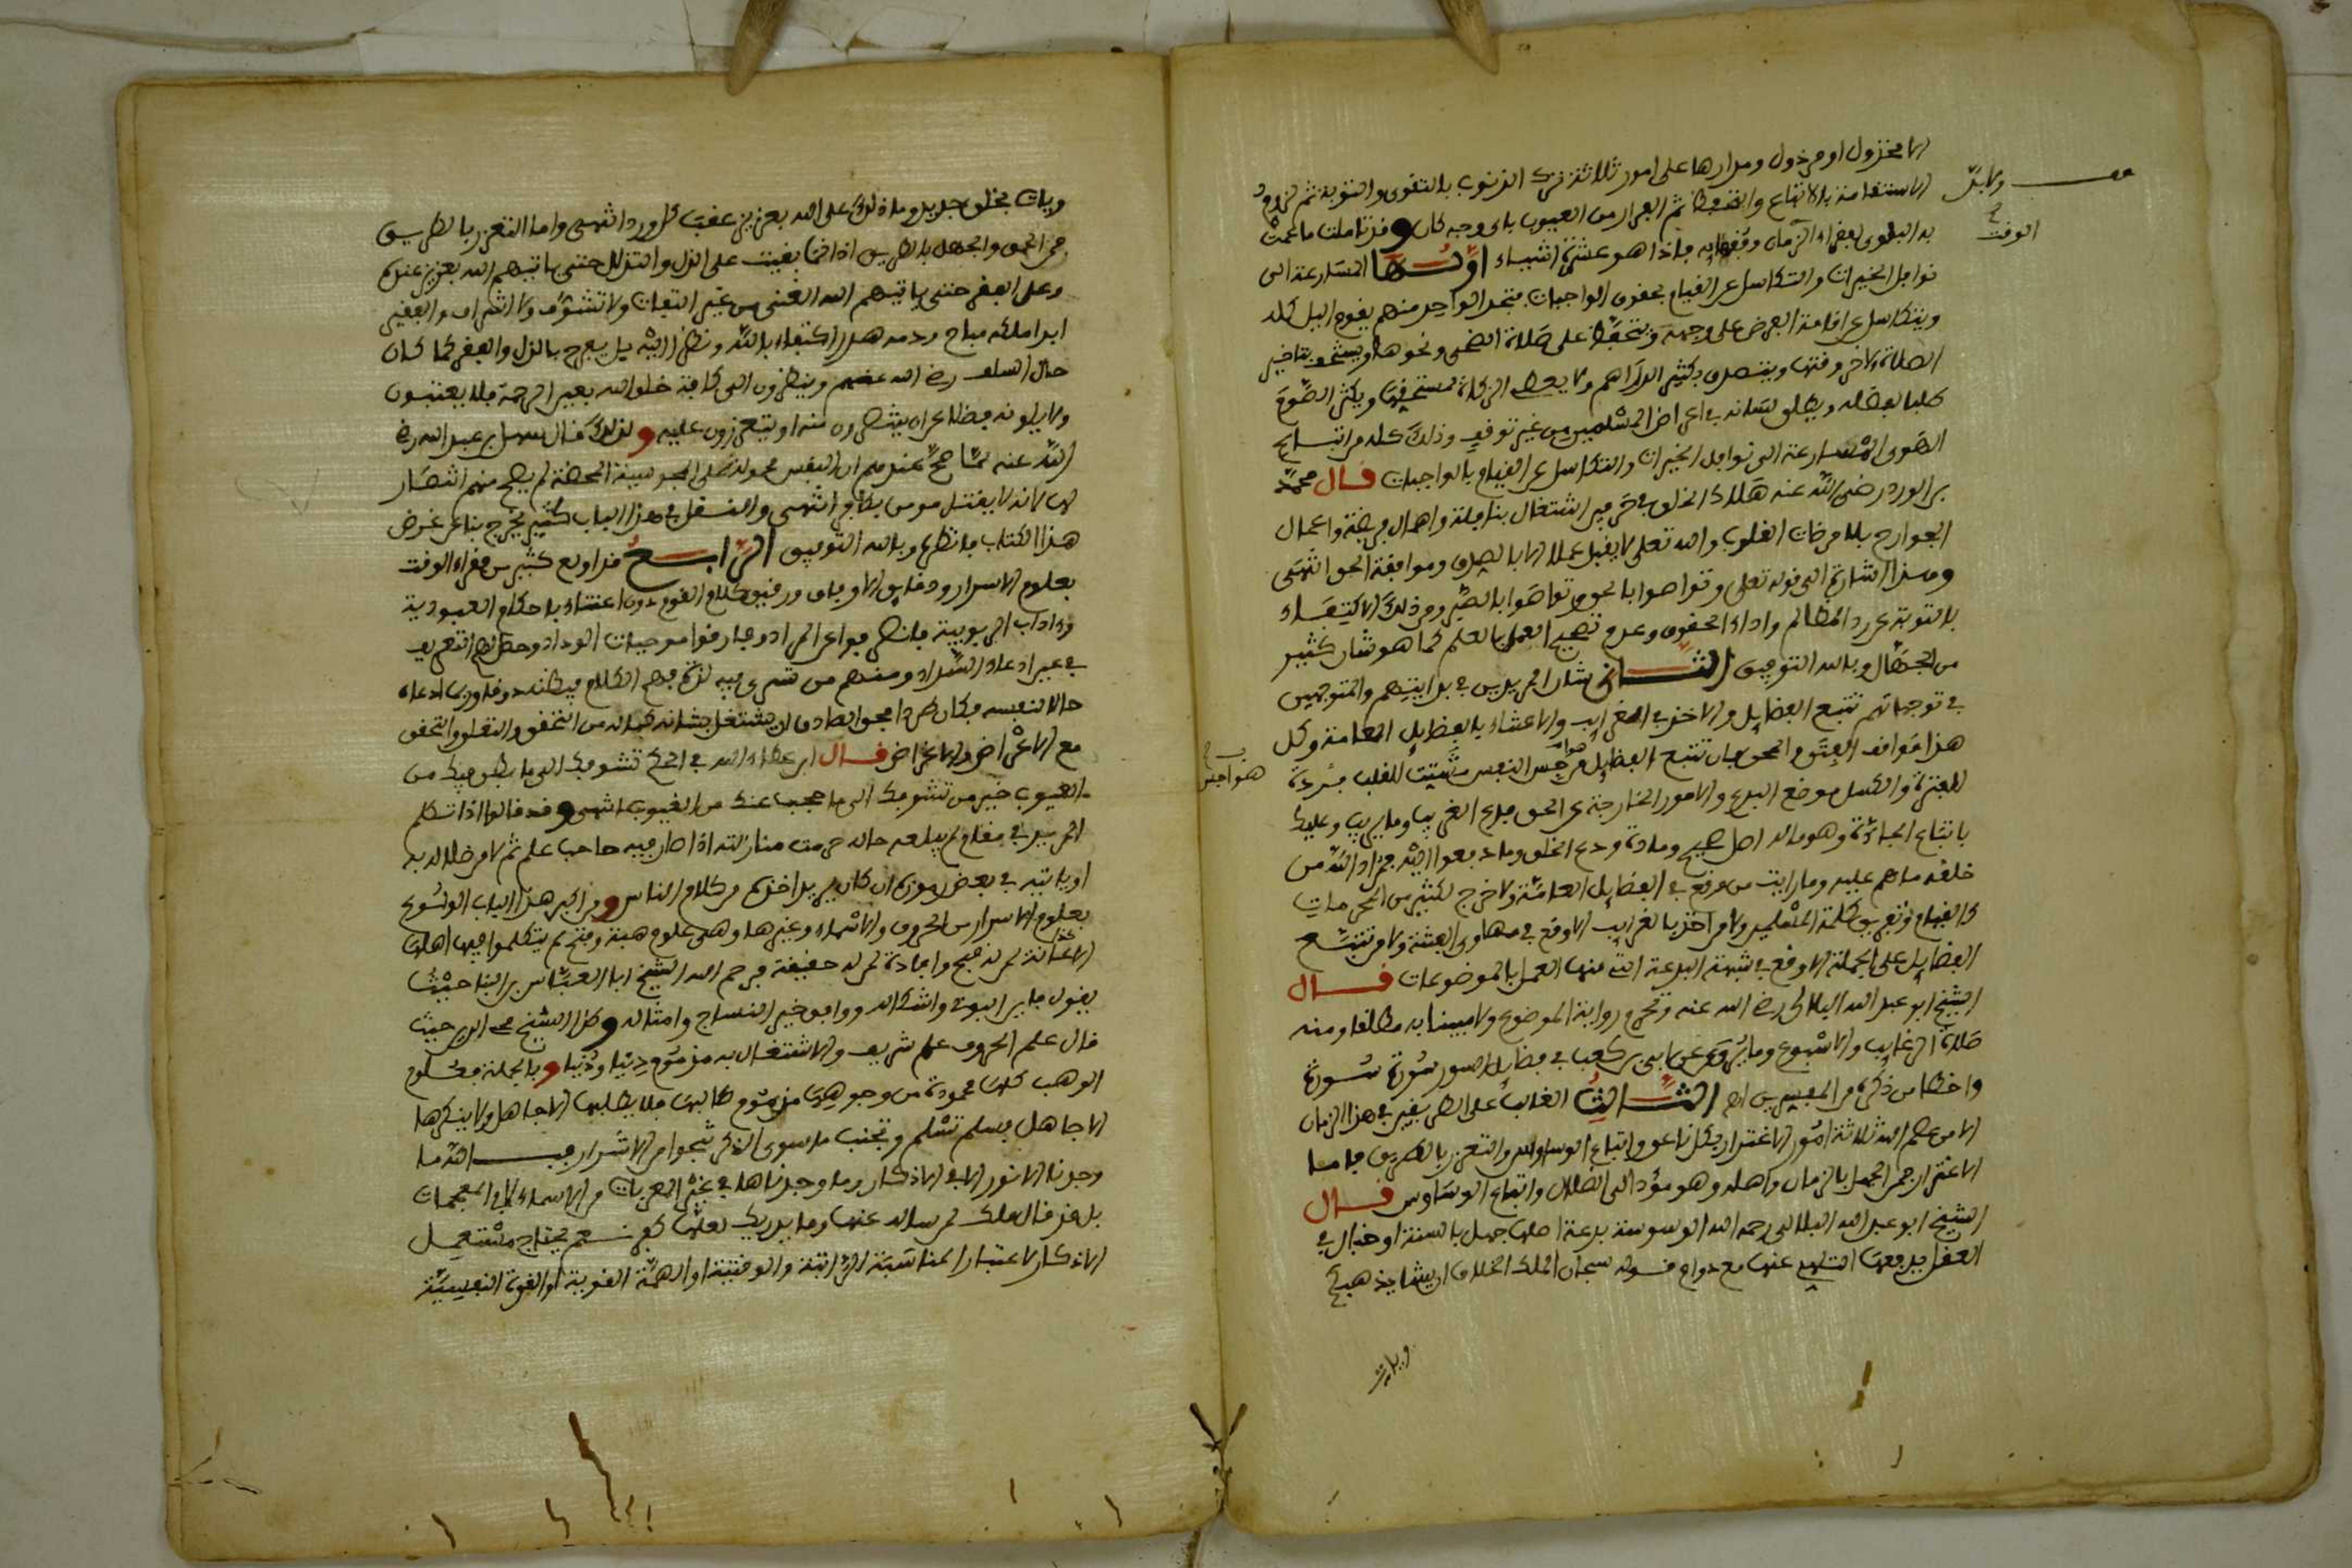 الا مخزول او مرذول ومدارها على امور ثلاثة ترك الذنوب بالتقوى والتوبة ثم لزوم
الاستقامة بالاتباع والتحفظ ثم الفرار من العيوب باى وجه كان وقد تاملت ما عمت
به البلوى لفقراء الزمان وفقهايه فاذا هو عشرة اشياء اولها المسارعة الى
نوافل الخيرات والتكاسل عن القيام بحقوق الواجبات فتجد الواحد منهم يقوم اليل كله
ويتكاسل عن اقامة الفرض على وجهه ويتحفظ على صلاة الضحى ونحوها ويستخف بتاخير
الصلاة لاخر وقتها ويتصدق بكثير الدراهم ولا يعطى الزكاة لمستحقها ويكثر الصوم
طلبا لفضله ويطلق لسانه فى اعراض المسلمين من غير توقف وذلك كله من اتباع
الهوى المسارعة الى نوافل الخيرات والتكاسل عن القيام بالواجبات قال محمد
بن الورد رضى الله عنه هلاك الخلق فى حرفين اشتغال بنافلة واهمال فريضة واعمال
الجوارح بلا مرضات القلوب والله تعلى لا يقبل عملا الا بالصدق وموافقة الحق انتهى
وهذا اشارة الى قوله تعلى وتواصوا بالحق وتواصوا بالصبر ومن ذلك الاكتفاء
بالتوبة عن رد المظالم واداء الحقوق وعدم تصحيح العمل بالعلم كما هو شان كثير
من الجهال وبالله التوفيق الثانى شان المريدين فى بدايتهم والمتوجهين
فى توجهاتهم تتبع الفضايل والاخذ فى الغرايب والاعتناء بالفضايل العامة وكل
هذا قواف الفتح والحق فان تتبع الفضايل من هواجس النفس مشتت للقلب مردة
للفترة والكسل موضع البدع والامور الخارجة عن الحق فدع الغرايب وما يريب وعليك
باتباع الجادة وهو ماله اصل صحيح ومادة ودع الخلق وما دفعوا اليه فمراد الله من
خلقه ما هم عليه وما رايت من وقع فى الفضايل العامة ولا خرج لكثير من المحرمات
كالقيام وتفريق كلمة المسلمين ولا من اخذ بالغرايب الا وقع فى مهاوى الفتنة ولا من تتبع
الفضايل على الجملة الا وقع فى شبهة البدعة التى منها العمل بالموضوعات قال
الشيخ ابو عبد الله البلالى رضى الله عنه وتحرم رواية الموضوع ولا مبينا به مطلقا ومنه
صلاة الرغايب والاسبوع وما يروى عن ابى بن كعب فى فضايل السور سورة سورة
واخطا من ذكره من المفسرين اهـ الثالث الغالب على الطريقين فى هذا الزمان
الا من عصم الله ثلاثة امور الاغترار بكل ناعق واتباع الوساوس والتعزز بالطريق فاما
الاغترار فمن الجهل بالزمان واهله وهو مؤد الى الضلال واتباع الوساوس قال
الشيخ ابو عبد الله البلالى رحمه الله الوسوسة بدعة اصلها جهل بالسنة او خبال فى
العقل يدفعها التلهى عنها مع دوام قوله سبحان الملك الخلاق ان يشا يذهبكم
ويات
ولا بد
الوقت
هواجس
ويات بخلق جديد وما ذلك على الله بعزيز عقب كل ورد انتهى واما التعزز بالطريق
فمن الحمق والجهل بالطريق اذ انما بنيت على الذل والتذلل حتى ياتيهم الله بعزيز عنده
وعلى الفقر حتى ياتيهم الله الغنى من غير التفات ولا تشوف ولا اشراف والفقير
ابدا ملكه مباح ودمه هدر اكتفاء بالله ونظرا اليه بل يفرح بالذل والفقر كما كان
حال السلف رضى الله عنهم وينظرون الى كافة خلق الله بعين الرحمة فلا يعتبون
ولا يلونه فضلا عن ان ينتصرون منه او يتعززون عليه ولذلك قال سهل بن عبد الله رضى
الله عنه لما صح عندهم ان النفس مجبولة على المجوسية المحضة لم يصح منهم انتصار
لها لانه لا يقتل مومن بكافر انتهى والنقل فى هذا الباب كثير يخرج بنا عن غرض
هذا الكتاب فانظره وبالله التوفيق الرابع قد اولع كثير من فقراء الوقت
بعلوم الاسرار ودقايق الاوفاق ورقيق كلام القوم دون اعتناء باحكام العبودية
واداب الربوبية فانصرفوا عن المراد وفارقوا موجبات الوداد وحصل لهم التعريف
فى عين ادعاء السداد ومنهم من تسرى فيه لذة فهم الكلام فيظنه ذوقا وربما ادعاه
حالا لنفسه فكان طردا فحق الصادق ان يشتغل بشانه كماله من التحقق والتعلق والتحقق
مع الاعراض والاعراض قال ابن عطاء الله فى الحكم تشوفك الى ما بطن فيك من
العيوب خير من تشوفك الى ما حجب عنك من الغيوب انتهى وقد قالوا اذا تكلم
المريد فى مقام لم يبلغه حاله حرمت منازلته اذا صار فيه صاحب علم ثم لا مرضاله به
او ياتيه فى بعض رموزه ان كان يريد اخذه من كلام الناس ومن اكبر هذا الباب الولوع
بعلوم الاسرار من الحروف والاسماء وغيرها وهى علوم هبة وفتح لم يتكلموا فيها اهلها
الا اعانة لمن له فتح وافادة لمن له حقيقة فرحم الله الشيخ ابا العباس بن البنا حيث
يقول فاير البونى واشكاله ووافق خير النساج وامثاله وكذا الشيخ محى الدين حيث
قال علم الحروف علم شريف والاشتغال به مذموم دينا ودنيا وبالجملة فعلوم
الوهب كلها محمودة من وجوهها مذموم طالبها فلا يطلبها الا جاهل ولا ينكرها
الا جاهل فسلم تسلم وتجنب ما سوى الذكر تنجوا من الاشرار فبالله ما
وجدنا الا نورا لا فى الاذكار وما وجدناها فى غير المعربات من الاسماء لا فى المعجمات
بل قد قال ملك لمن ساله عنها وما يدريك لعلها كفر نعم يحتاج مستعمل
الاذكار لاعتبار المناسبة الزاتية والوقتية او الهمة القوية او القوة النفسية